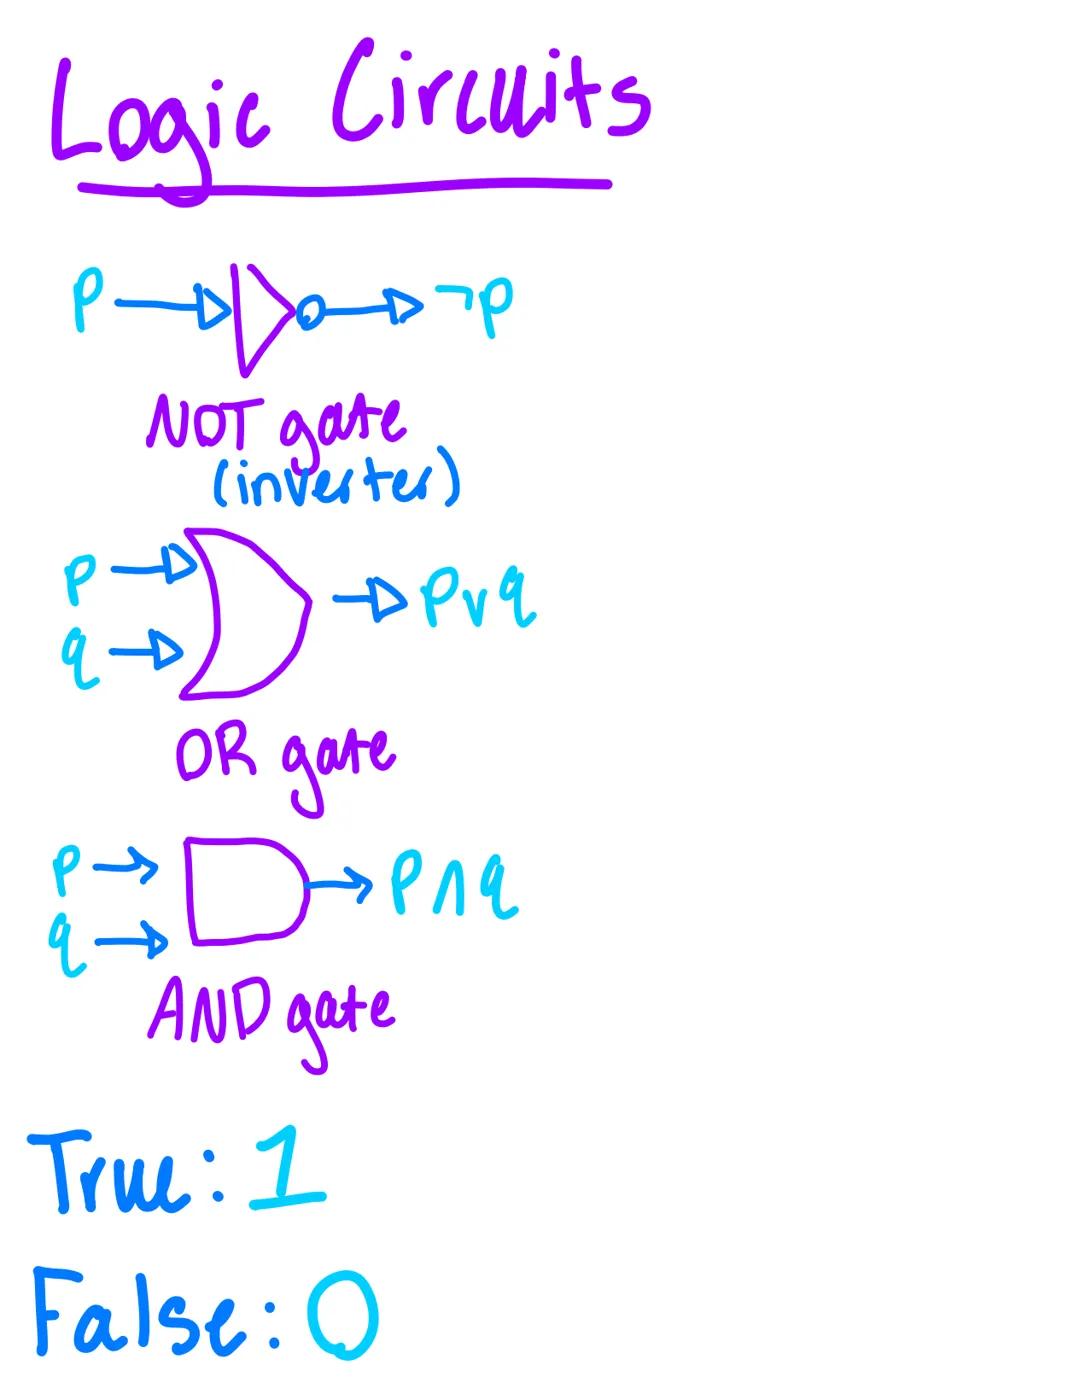 Logic Circuits
p ¬p
NOT gate
(inverter)
p
q p∨q
OR gate
p
q p∧q
AND gate
True: 1
False: 0